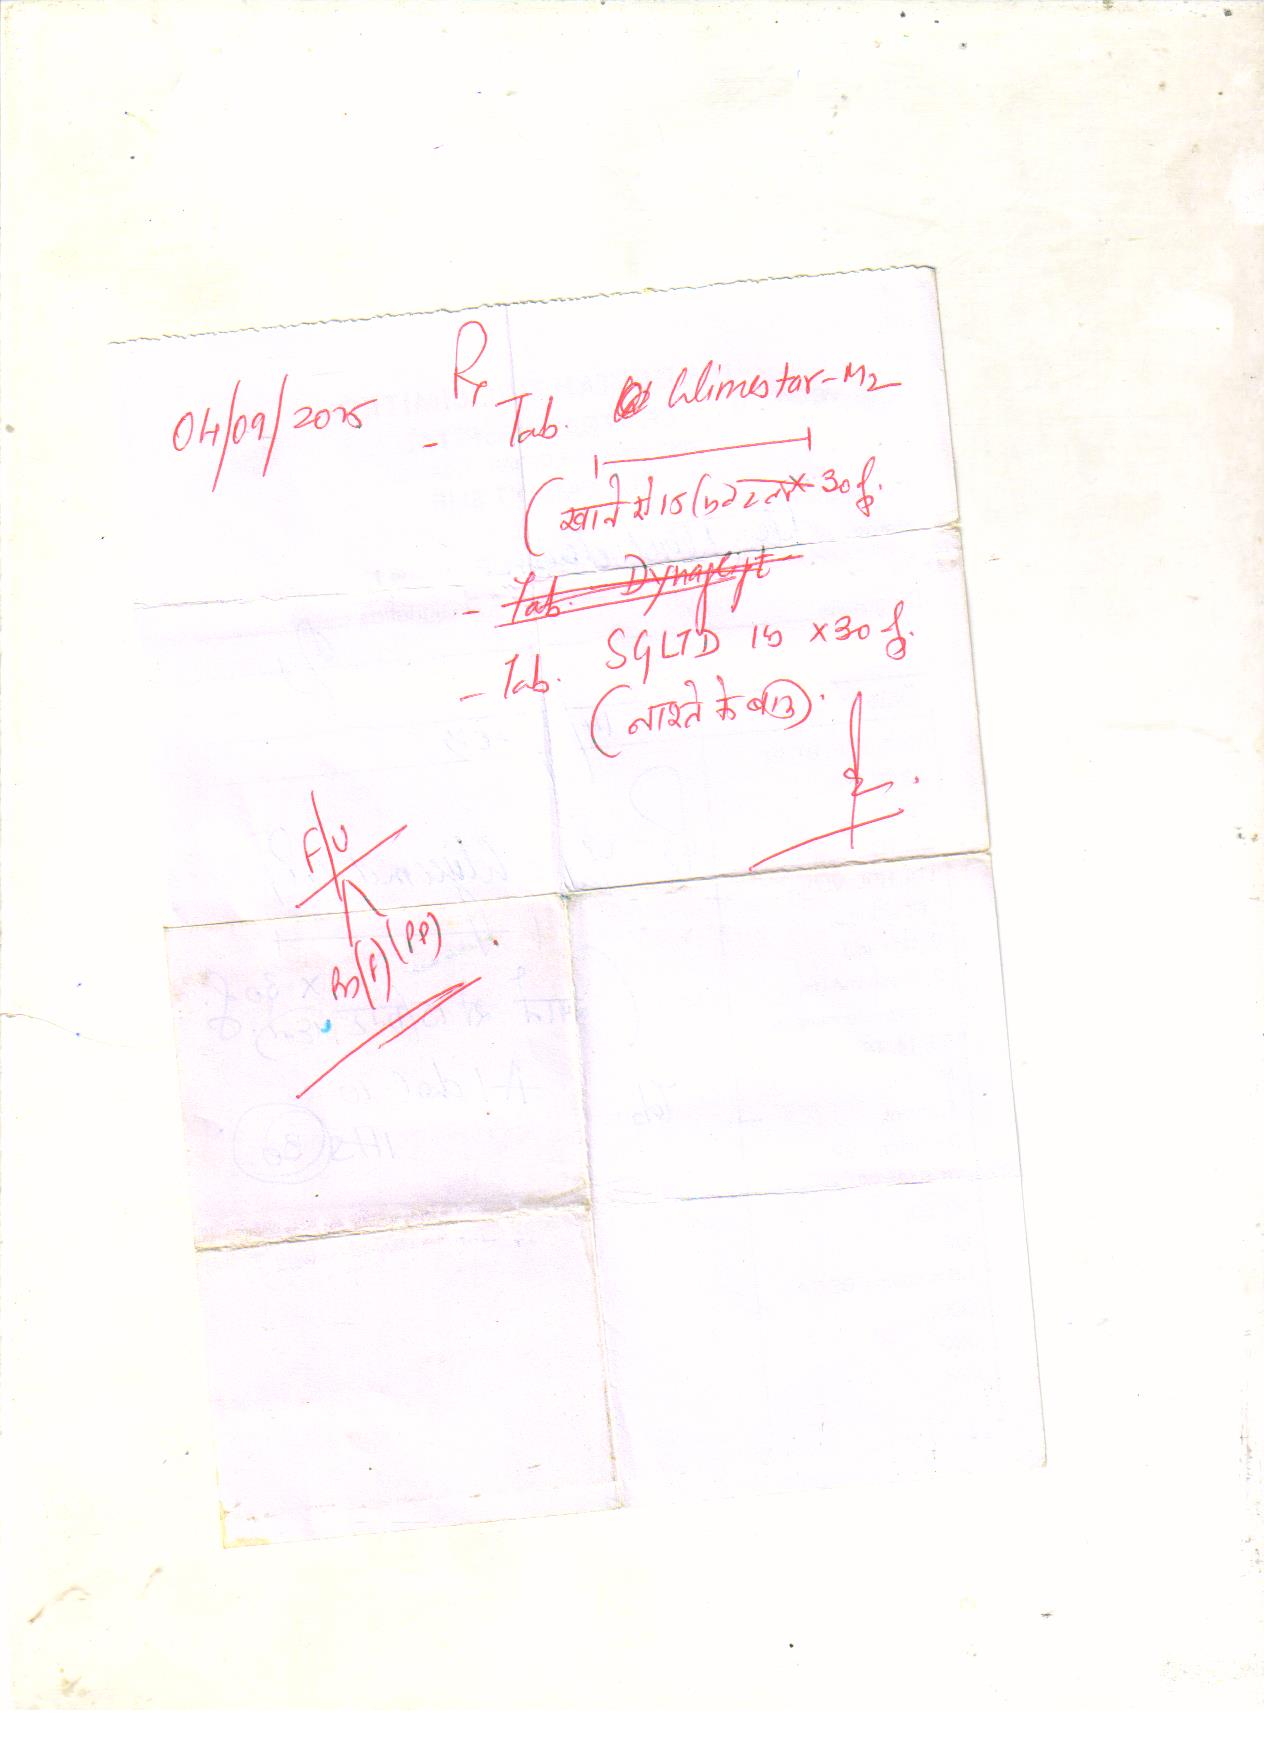 Rx
04/09/2025
- Tab. Glimestar-M2
(खाने से 15 मिनट पहले × 30 दि.
- Tab. Dynaglipt
- Tab. SGLTD 10 ×30 दि.
(नाश्ते के बाद).
F/U
BS(F) (PP)